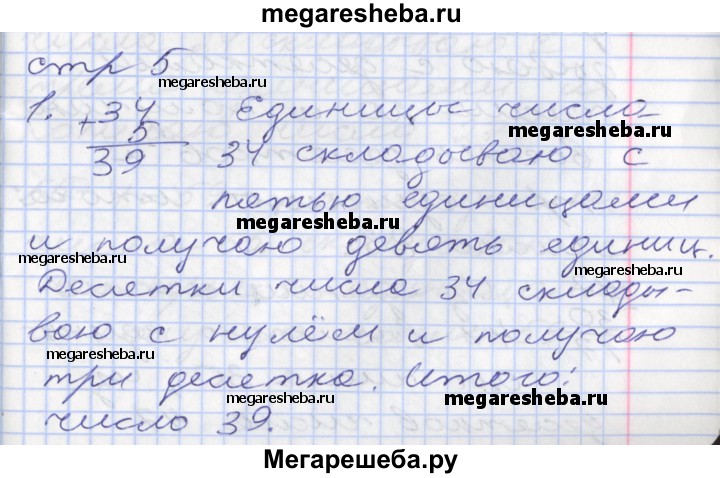 megaresheba.ru
стр 5
megaresheba.ru
1. +34 Единицы числа
megaresheba.ru
5
39 34 складываю с
megaresheba.ru
пятью единицами
megaresheba.ru
и получаю девять единиц.
megaresheba.ru
megaresheba.ru
Десятки числа 34 склады-
ваю с нулём и получаю
megaresheba.ru
три десятка. Итого:
megaresheba.ru
megaresheba.ru
число 39.
Мегарешеба.ру